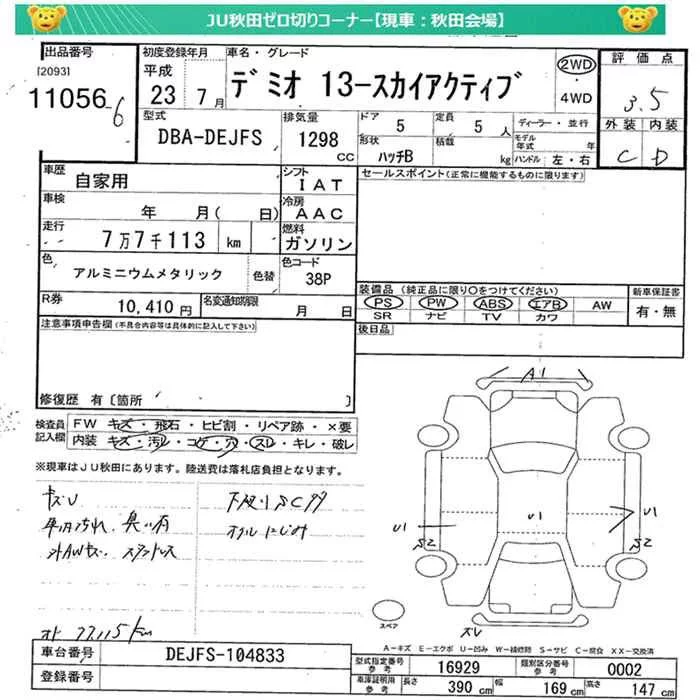 JU秋田ゼロ切りコーナー【現車：秋田会場】
出品番号
[2093]
11056
6
初度登録年月
平成
23年 7月
車名・グレード
デミオ 13-スカイアクティブ
2WD
・
4WD
評価点
3.5
外装 内装
C D
型式
DBA-DEJFS
排気量
1298 CC
ドア 5
定員 5人
形状 ハッチB
積載 kg
ディーラー・並行
モデル年式 年
ハンドル 左・右
車歴 自家用
シフト IAT
セールスポイント(正常に機能するものに限ります)
車検 年 月( 日)
冷房 AAC
走行 7万7千113 km
燃料 ガソリン
色 アルミニウムメタリック
色替
色コード 38P
R券 10,410円
名変通知期限 月 日
装備品 (純正品に限り○をつけてください)
新車保証書
PS PW ABS エアB AW
有・無
SR ナビ TV カワ
後日品
注意事項申告欄(不具合内容等は具体的に記入して下さい)
修復歴 有〔箇所 〕
検査員記入欄
FW キズ・飛石・ヒビ割・リペア跡・×要
内装 キズ・汚レ・コゲ・穴・スレ・キレ・破レ
※現車はJU秋田にあります。陸送費は落札店負担となります。
A1
U1
U1
U1
S2
S2
キズU
スペア
オド 77,115km
車台番号 DEJFS-104833
登録番号
A-キズ E-エクボ U-凹み W-補修跡 S-サビ C-腐食 XX-交換済
型式指定番号 参考 16929
類別区分番号 参考 0002
車庫証明用 参考 長さ 390 cm 幅 169 cm 高さ 147 cm